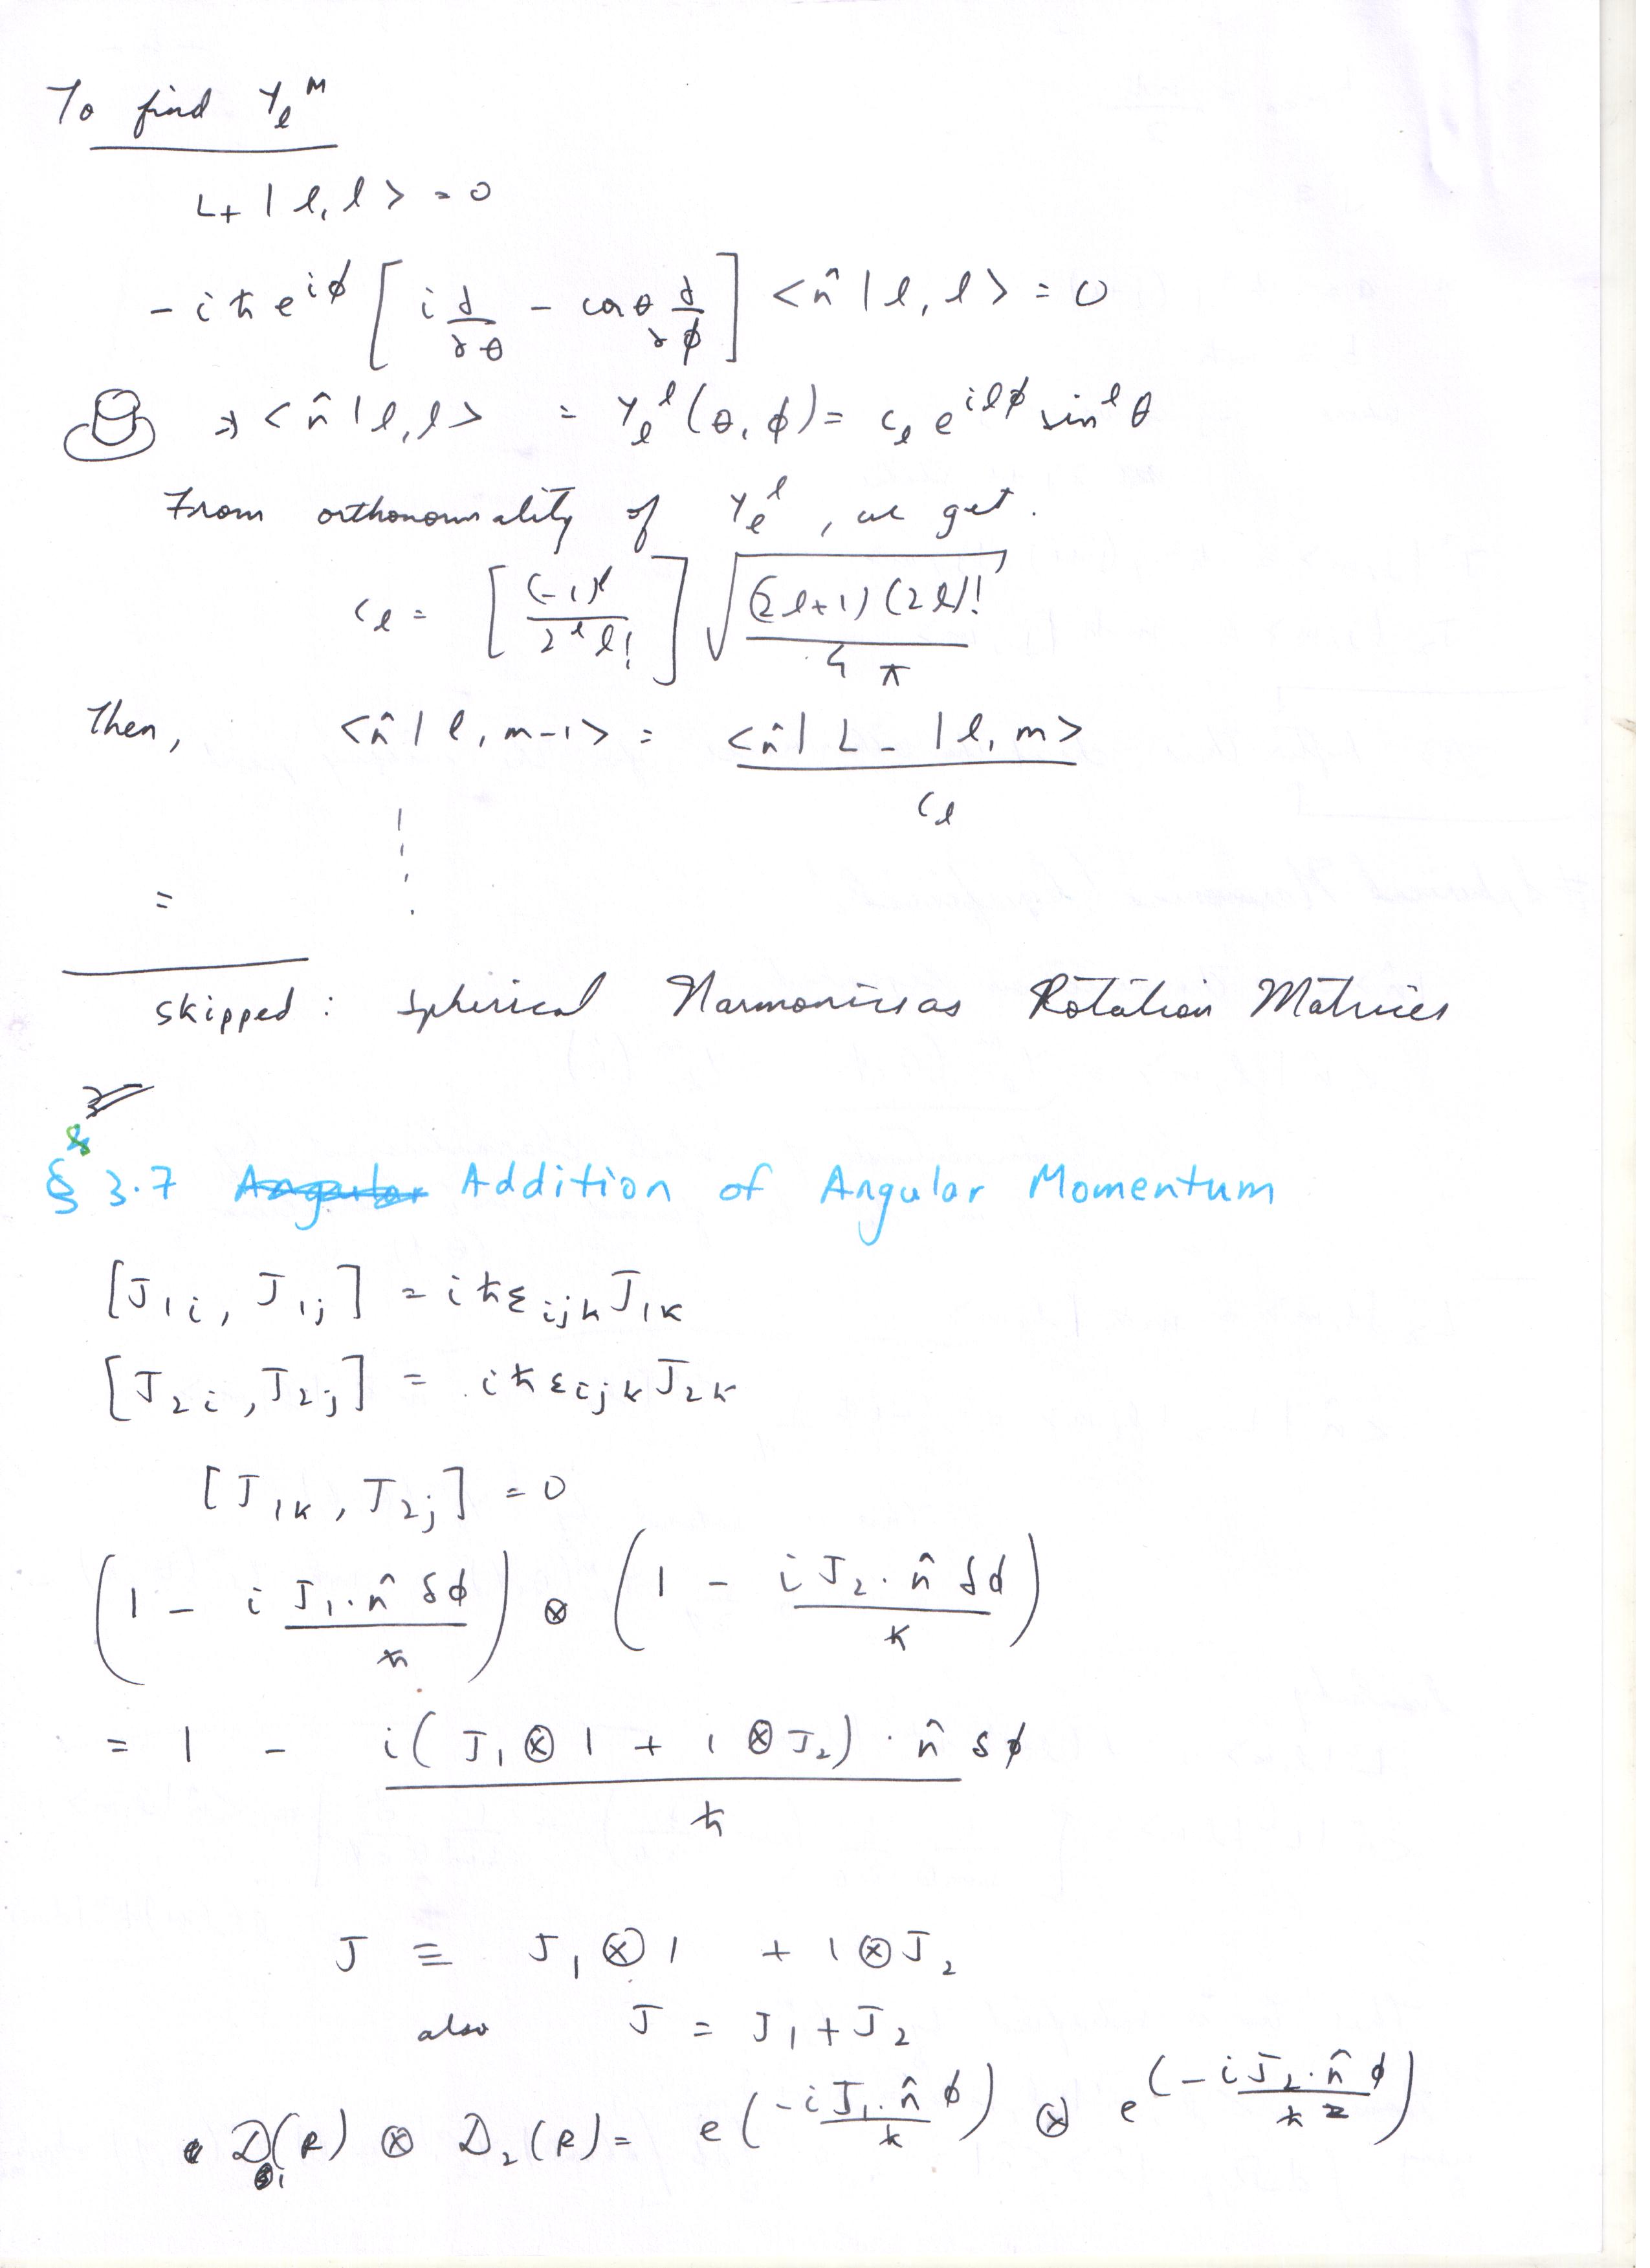 To find Y_l^m
L+ | l, l > = 0
- i ħ e^{iφ} [ i ∂/∂θ - cot θ ∂/∂φ ] < n̂ | l, l > = 0
⇒ < n̂ | l, l > = Y_l^l (θ, φ) = c_l e^{ilφ} sin^l θ
From orthonormality of Y_l^l , we get.
c_l = [ (-1)^l / 2^l l! ] √( (2l+1) (2l)! / 4π )
Then, < n̂ | l, m-1 > = < n̂ | L_- | l, m > / c_l
=
skipped : Spherical Harmonics as Rotation Matrices
§ 3.7 Angular Addition of Angular Momentum
[ J_{1i}, J_{1j} ] = i ħ ε_{ijk} J_{1k}
[ J_{2i}, J_{2j} ] = i ħ ε_{ijk} J_{2k}
[ J_{1k}, J_{2j} ] = 0
( 1 - i J_1 · n̂ δφ / ħ ) ⊗ ( 1 - i J_2 · n̂ δφ / ħ )
= 1 - i ( J_1 ⊗ 1 + 1 ⊗ J_2 ) · n̂ δφ / ħ
J ≡ J_1 ⊗ 1 + 1 ⊗ J_2
also J = J_1 + J_2
D_1(R) ⊗ D_2(R) = e^( -i J_1 · n̂ φ / ħ ) ⊗ e^( -i J_2 · n̂ φ / ħ )